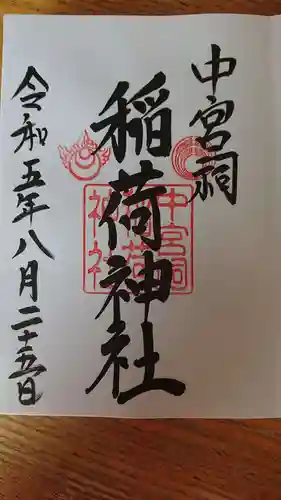 中宮祠
稲荷神社
令和五年八月二十五日
中宮祠
稲荷
神社